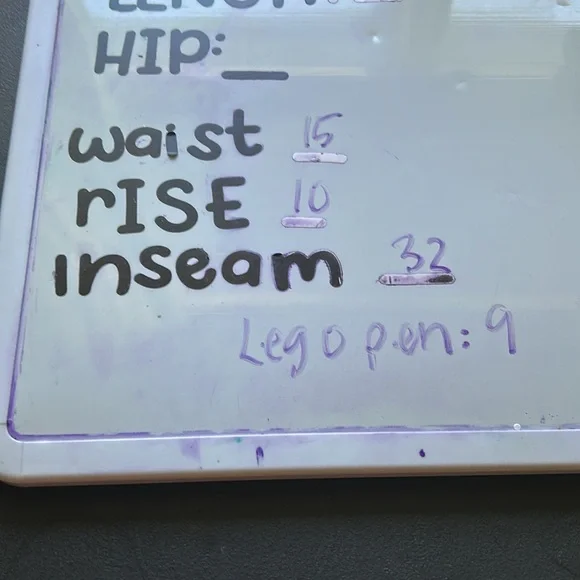 LENGTH:
HIP:__
waist 15
rISE 10
Inseam 32
Leg open: 9